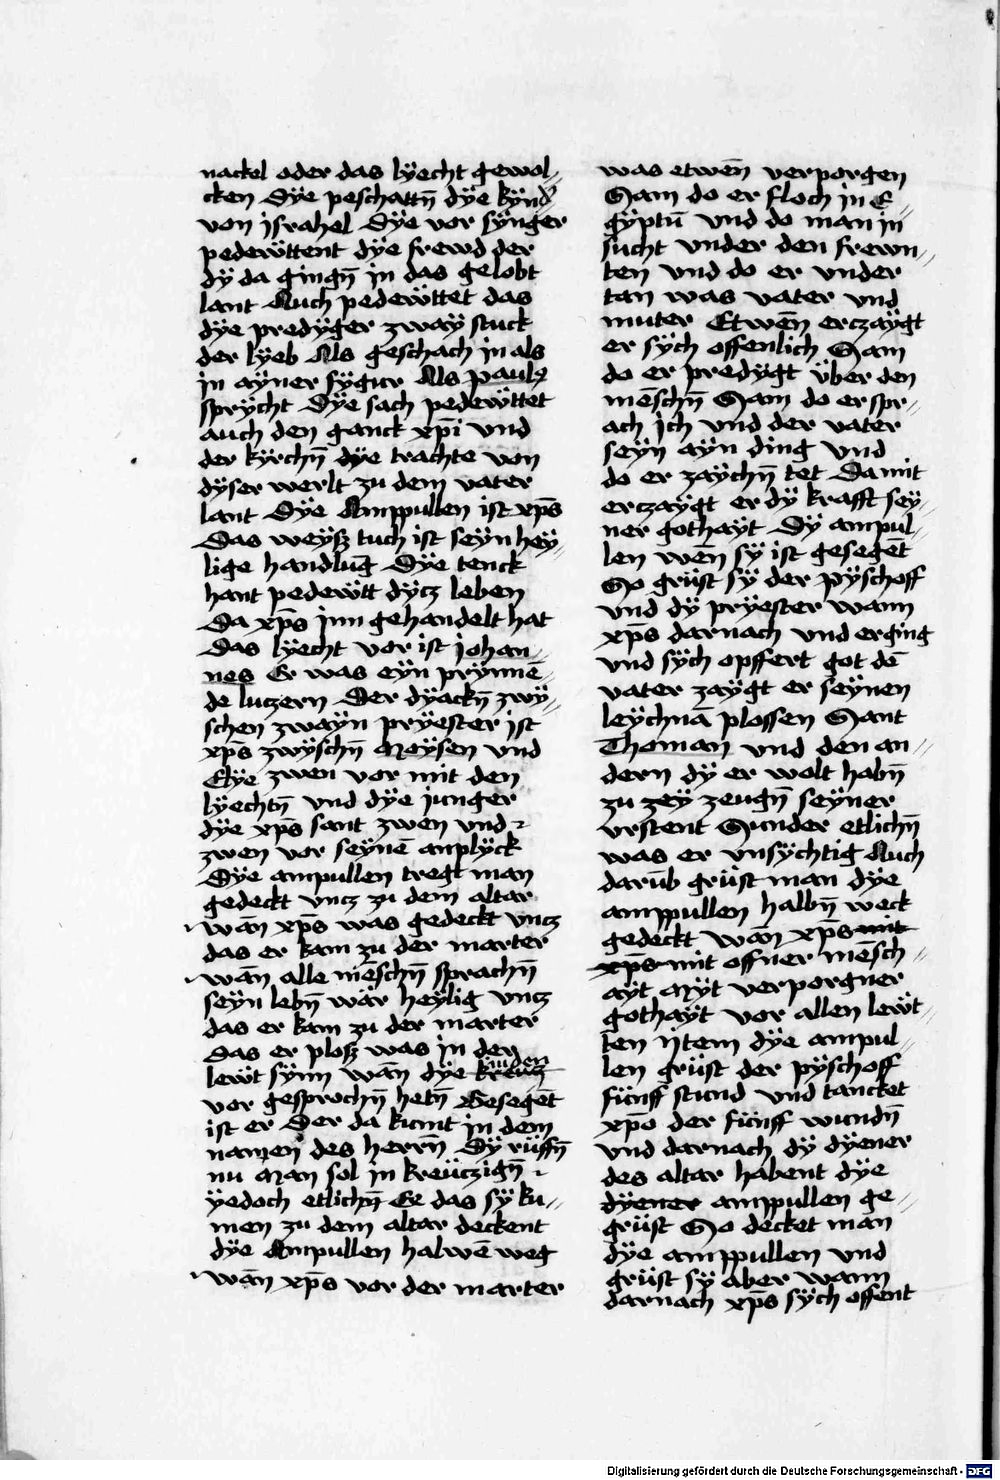 nackel oder das lÿecht gewol-
cken Dÿe peschattn̄ dÿe kÿnd̕
von jsrahel Dÿe vor sÿnger
pedewttent dÿe frewd der
dÿ da gingn̄ in das gelobt
lant Auch pedewttet das
dÿe predÿger zwaÿ stuck
der lÿeb Als geschach in als
in aÿner fÿgur Als paulꝯ
sprÿcht Dÿe sach pedewttet
auch den ganck xp̄i vnd
der kÿrchn̄ dÿe trachtē von
dÿser werlt zu dem vater
lant Dÿe Amppullen ist xp̄s
Das weÿsz tuch ist seÿn heÿ-
lige handlūg Dÿe tenck
hant pedewtt dÿtz leben
Da xp̄s jnn gehandelt hat
Das lÿecht vor ist johan-
nes Er was eÿn prÿnnē-
de lutzern Der dÿackn̄ zwÿ-
schen zwaÿn prÿester ist
xp̄s zwÿschn̄ Moÿsen vnd
Elÿe zwen vor mit den
lÿechtn̄ vnd dÿe junger
dÿe xp̄s sant zwen vnd
zwen vor seÿnē anplÿck
Dÿe ampullen tregt man
gedeckt vntz zu dem altar
wān xp̄s was gedeckt vntz
das er kam zu der marter
wān alle mēschn̄ sprachn̄
seÿn lebn̄ wär heÿlig vntz
das er kam zu der marter
Das er plosz was in der
lewt sÿnn wān dÿe kreutz
juden
vor gesprochn̄ hetn̄ Gesegēt
ist er Der da kumt in dem
namen des herrn̄ Dÿ rüffn̄
nu Man sol in kreützign̄
ÿedoch etlichn̄ Ee das sÿ ku-
men zu dem altar deckent
dÿe Ampullen halwē weg
wān xp̄s vor der marter
was etwēn verporgen
Sam do er floch in E-
gÿptū vnd do man in
sucht vnder den frewn-
ten vnd do er vnder
tan was vater vnd
muter Etwēn erczaÿgt
er sÿch offenlich Sam
do er predÿgt über den
mēschn̄ Sam do er spr-
ach jch vnd der vater
seÿn aÿn ding vnd
do er zaÿchn̄ tet Damit
erczaÿgt er dÿ krafft seÿ-
ner gothaÿt Dÿ ampul-
len wēn sÿ ist gesegēt
So grüst sÿ der Pÿschoff
vnd dÿ prÿester wann
xp̄s darnach vnd erging
vnd sÿch opffert got dē
vater zaÿgt er seÿnen
leÿchnā plossen Sant
Thoman vnd den an-
dern dÿ er wolt habn̄
zu zeÿ zeugn̄ seÿner
vrstent Sunder etlichn̄
was er vnsÿchtig Auch
darūb grüst man dÿe
amppullen halbn̄ weck
gedeckt wān xp̄s mit
xp̄s mit offner mēsch-
aÿt Mÿt verporgner
gothaÿt vor allen lewt-
ten Jtem dÿe ampul-
len grüst der pÿschoff
fünff stund vnd tancket
xp̄o der fünff wundn̄
vnd darnach dÿ dÿener
des altar habent dÿe
dÿener amppullen ge-
grüst So decket man
dÿe amppullen vnd
grüst sÿ aber wann
darnach xp̄s sÿch offent
Digitalisierung gefördert durch die Deutsche Forschungsgemeinschaft - DFG